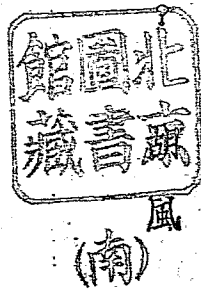 北京圖書館藏
風
(南)